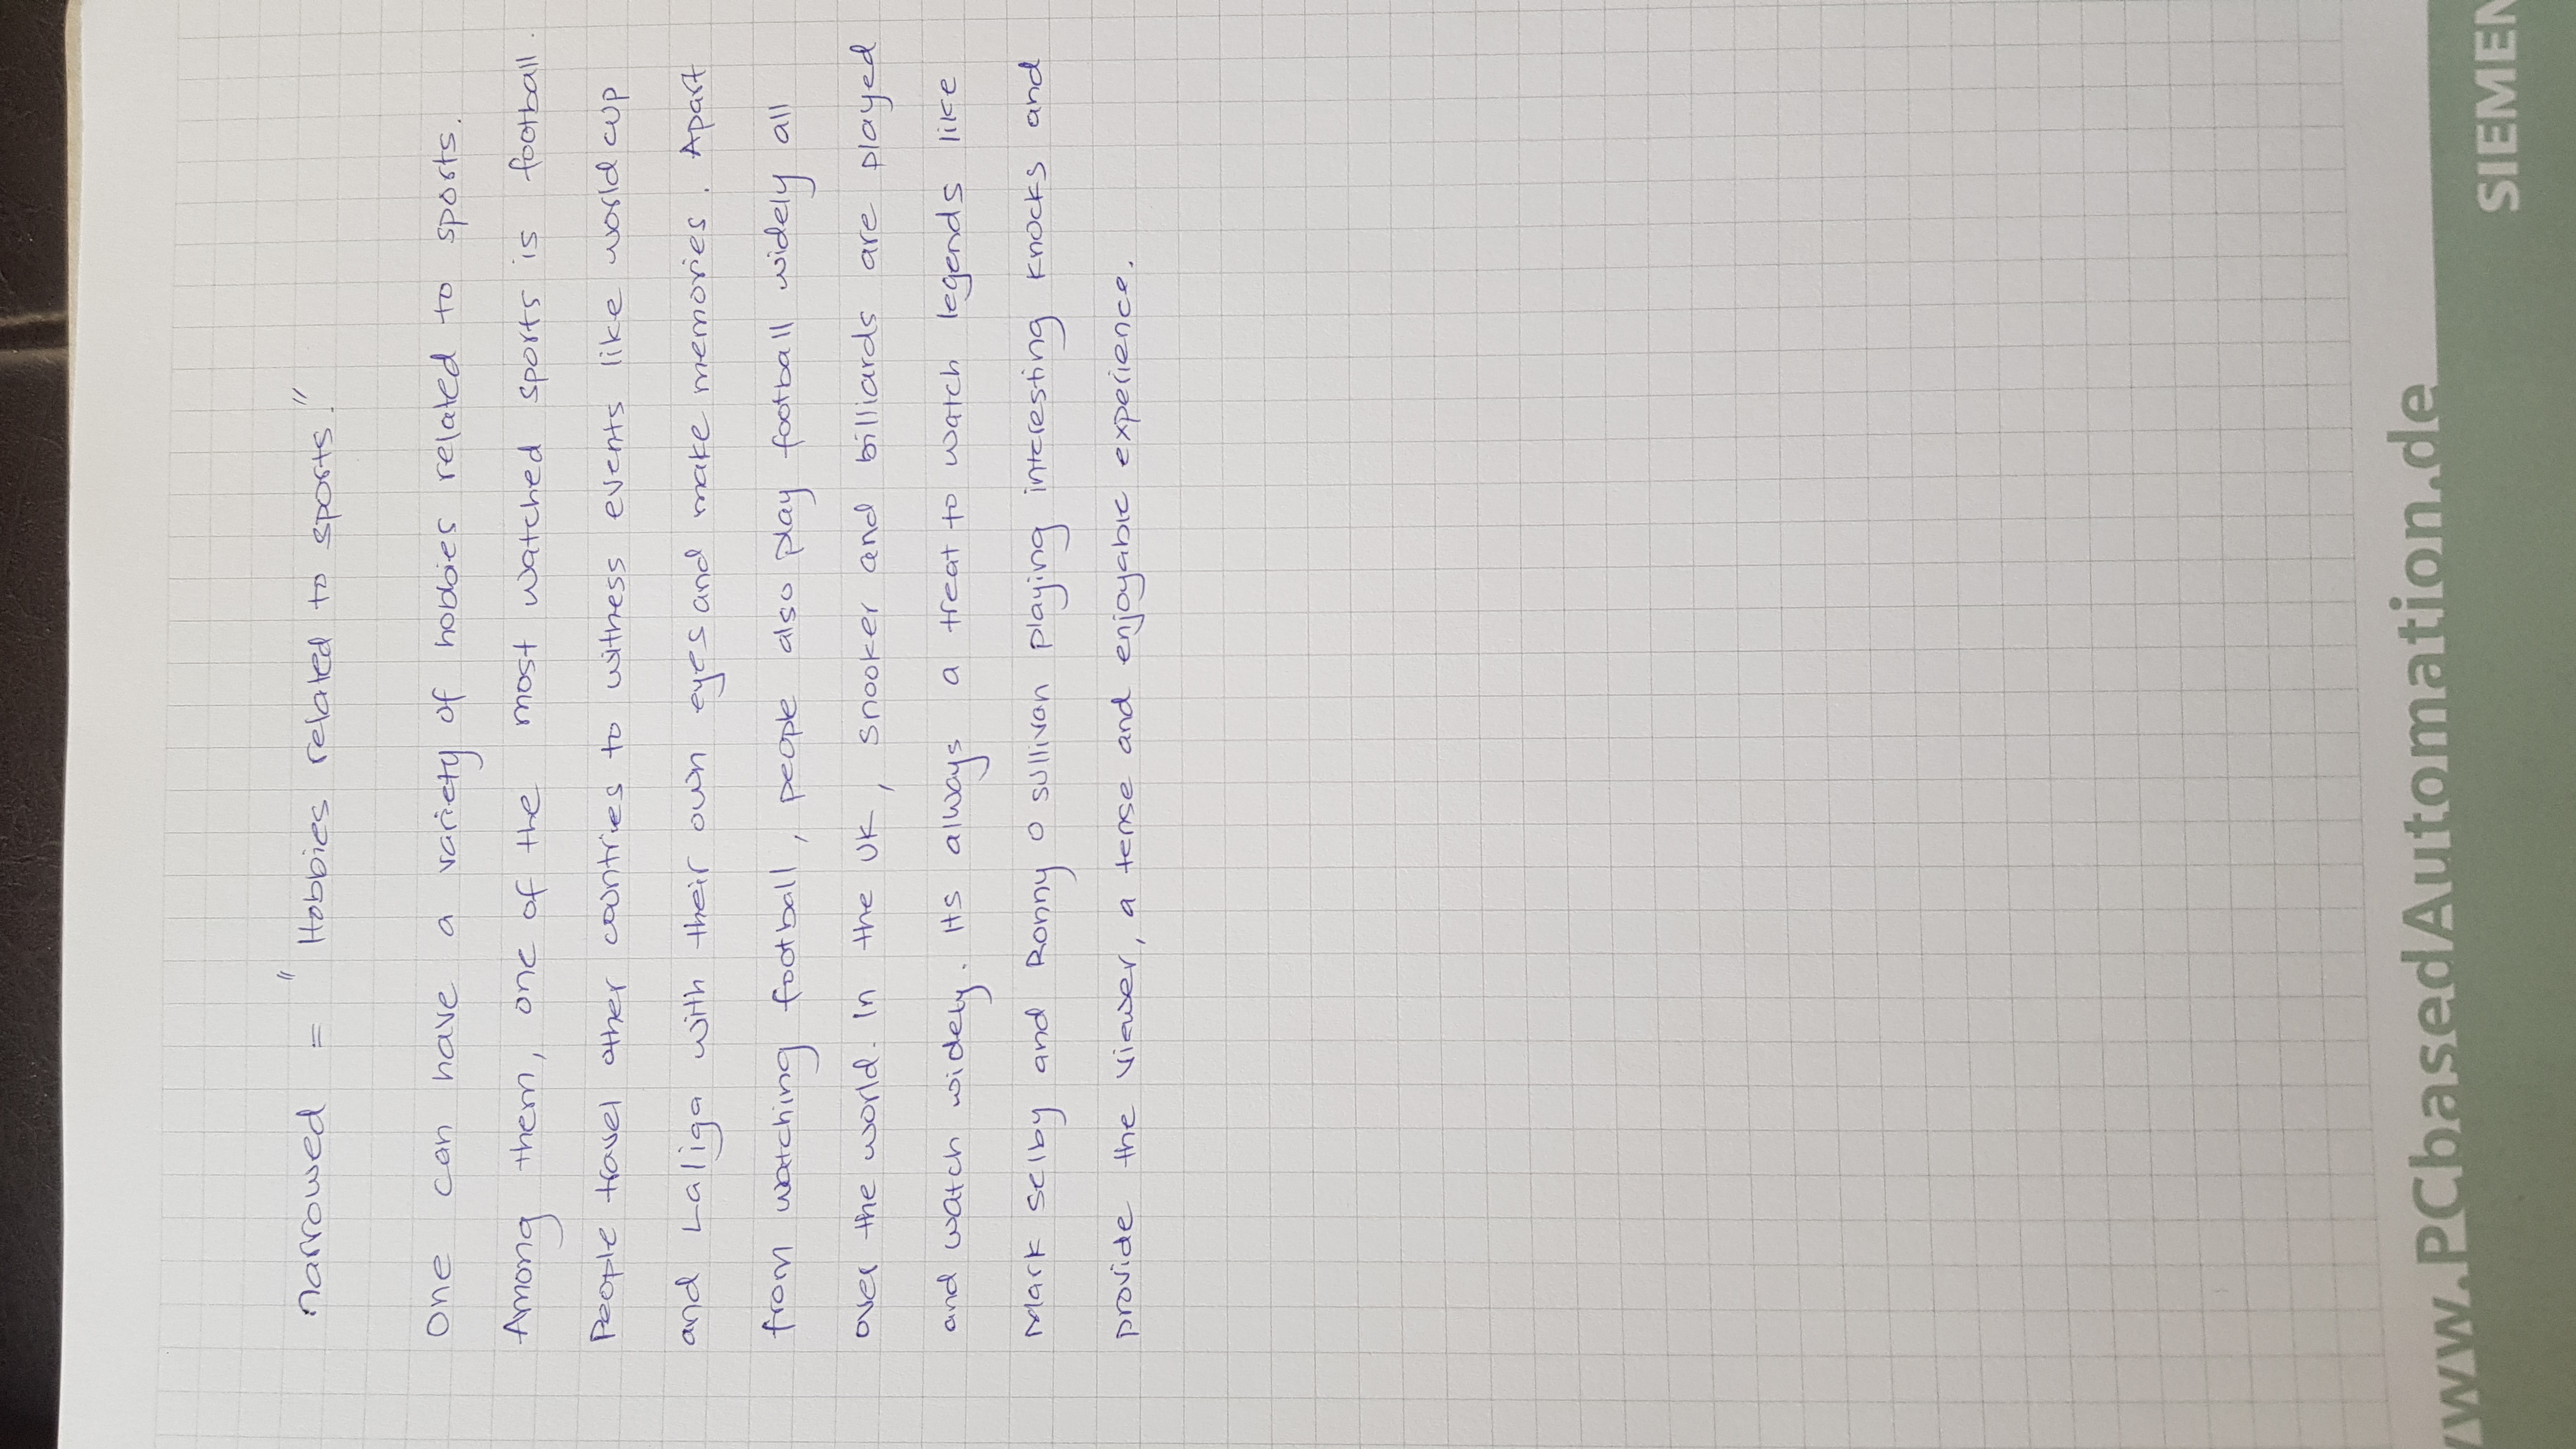 narrowed = "Hobbies related to sports."
One can have a variety of hobbies related to sports.
Among them, one of the most watched sports is football.
People travel other countries to witness events like world cup
and Laliga with their own eyes and make memories. Apart
from watching football, people also play football widely all
over the world. In the UK, snooker and billiards are played
and watch widely. Its always a treat to watch legends like
Mark Selby and Ronny O sullivan playing interesting knocks and
provide the viewer, a tense and enjoyable experience.
www.PCbasedAutomation.de
SIEMEN